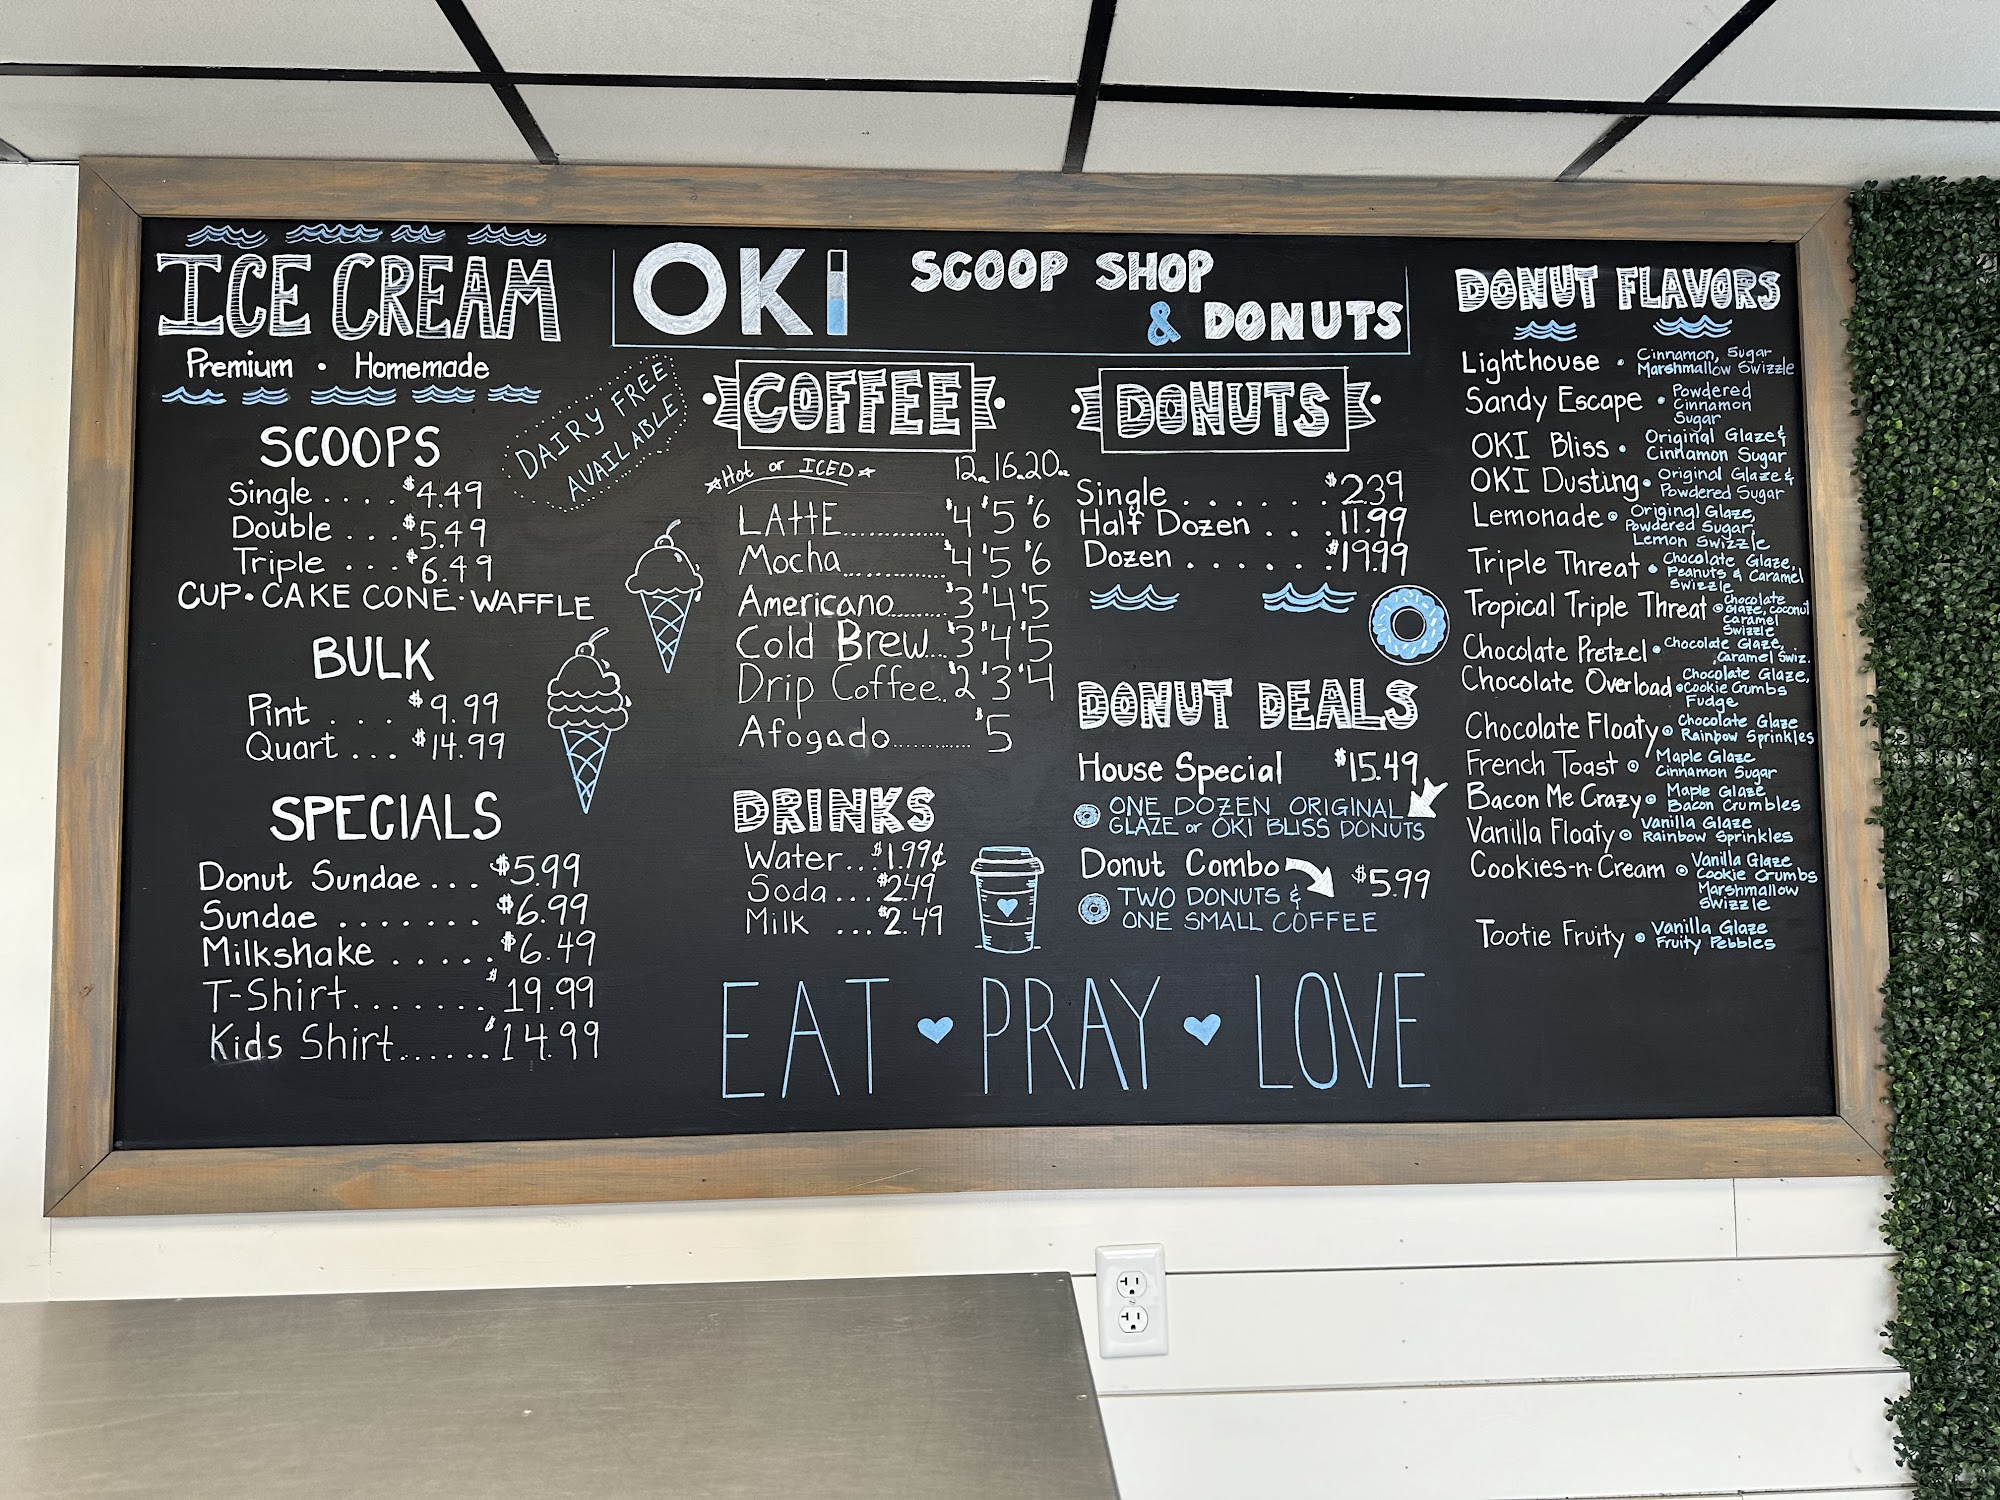 ICE CREAM
Premium • Homemade
DAIRY FREE
AVAILABLE
SCOOPS
Single .... $4.49
Double ... $5.49
Triple ... $6.49
CUP • CAKE CONE • WAFFLE
BULK
Pint .... $9.99
Quart ... $14.99
SPECIALS
Donut Sundae ... $5.99
Sundae ....... $6.99
Milkshake ..... $6.49
T-Shirt....... $19.99
Kids Shirt...... $14.99
OKI SCOOP SHOP
& DONUTS
COFFEE
Hot or ICED 12oz 16oz 20oz
LAttE............ $4 $5 $6
Mocha............ $4 $5 $6
Americano........ $3 $4 $5
Cold Brew.... $3 $4 $5
Drip Coffee.. $2 $3 $4
Afogado........... $5
DRINKS
Water... $1.99¢
Soda... $2.49
Milk ... $2.49
DONUTS
Single ....... $2.39
Half Dozen ... 11.99
Dozen ...... $19.99
DONUT DEALS
House Special $15.49
ONE DOZEN ORIGINAL
GLAZE or OKI BLISS DONUTS
Donut Combo $5.99
TWO DONUTS &
ONE SMALL COFFEE
EAT PRAY LOVE
DONUT FLAVORS
Lighthouse • Cinnamon, Sugar
Marshmallow Swizzle
Sandy Escape • Powdered
Cinnamon
Sugar
OKI Bliss • Original Glaze &
Cinnamon Sugar
OKI Dusting • Original Glaze &
Powdered Sugar
Lemonade • Original Glaze,
Powdered Sugar,
Lemon Swizzle
Triple Threat • Chocolate Glaze,
Peanuts & Caramel
Swizzle
Tropical Triple Threat • Chocolate
Glaze, Coconut
Caramel
Swizzle
Chocolate Pretzel • Chocolate Glaze,
Caramel Swiz.
Chocolate Overload • Chocolate Glaze,
Cookie Crumbs
Fudge
Chocolate Floaty • Chocolate Glaze
Rainbow Sprinkles
French Toast • Maple Glaze
Cinnamon Sugar
Bacon Me Crazy • Maple Glaze
Bacon Crumbles
Vanilla Floaty • Vanilla Glaze
Rainbow Sprinkles
Cookies-n-Cream • Vanilla Glaze
Cookie Crumbs
Marshmallow
Swizzle
Tootie Fruity • Vanilla Glaze
Fruity Pebbles